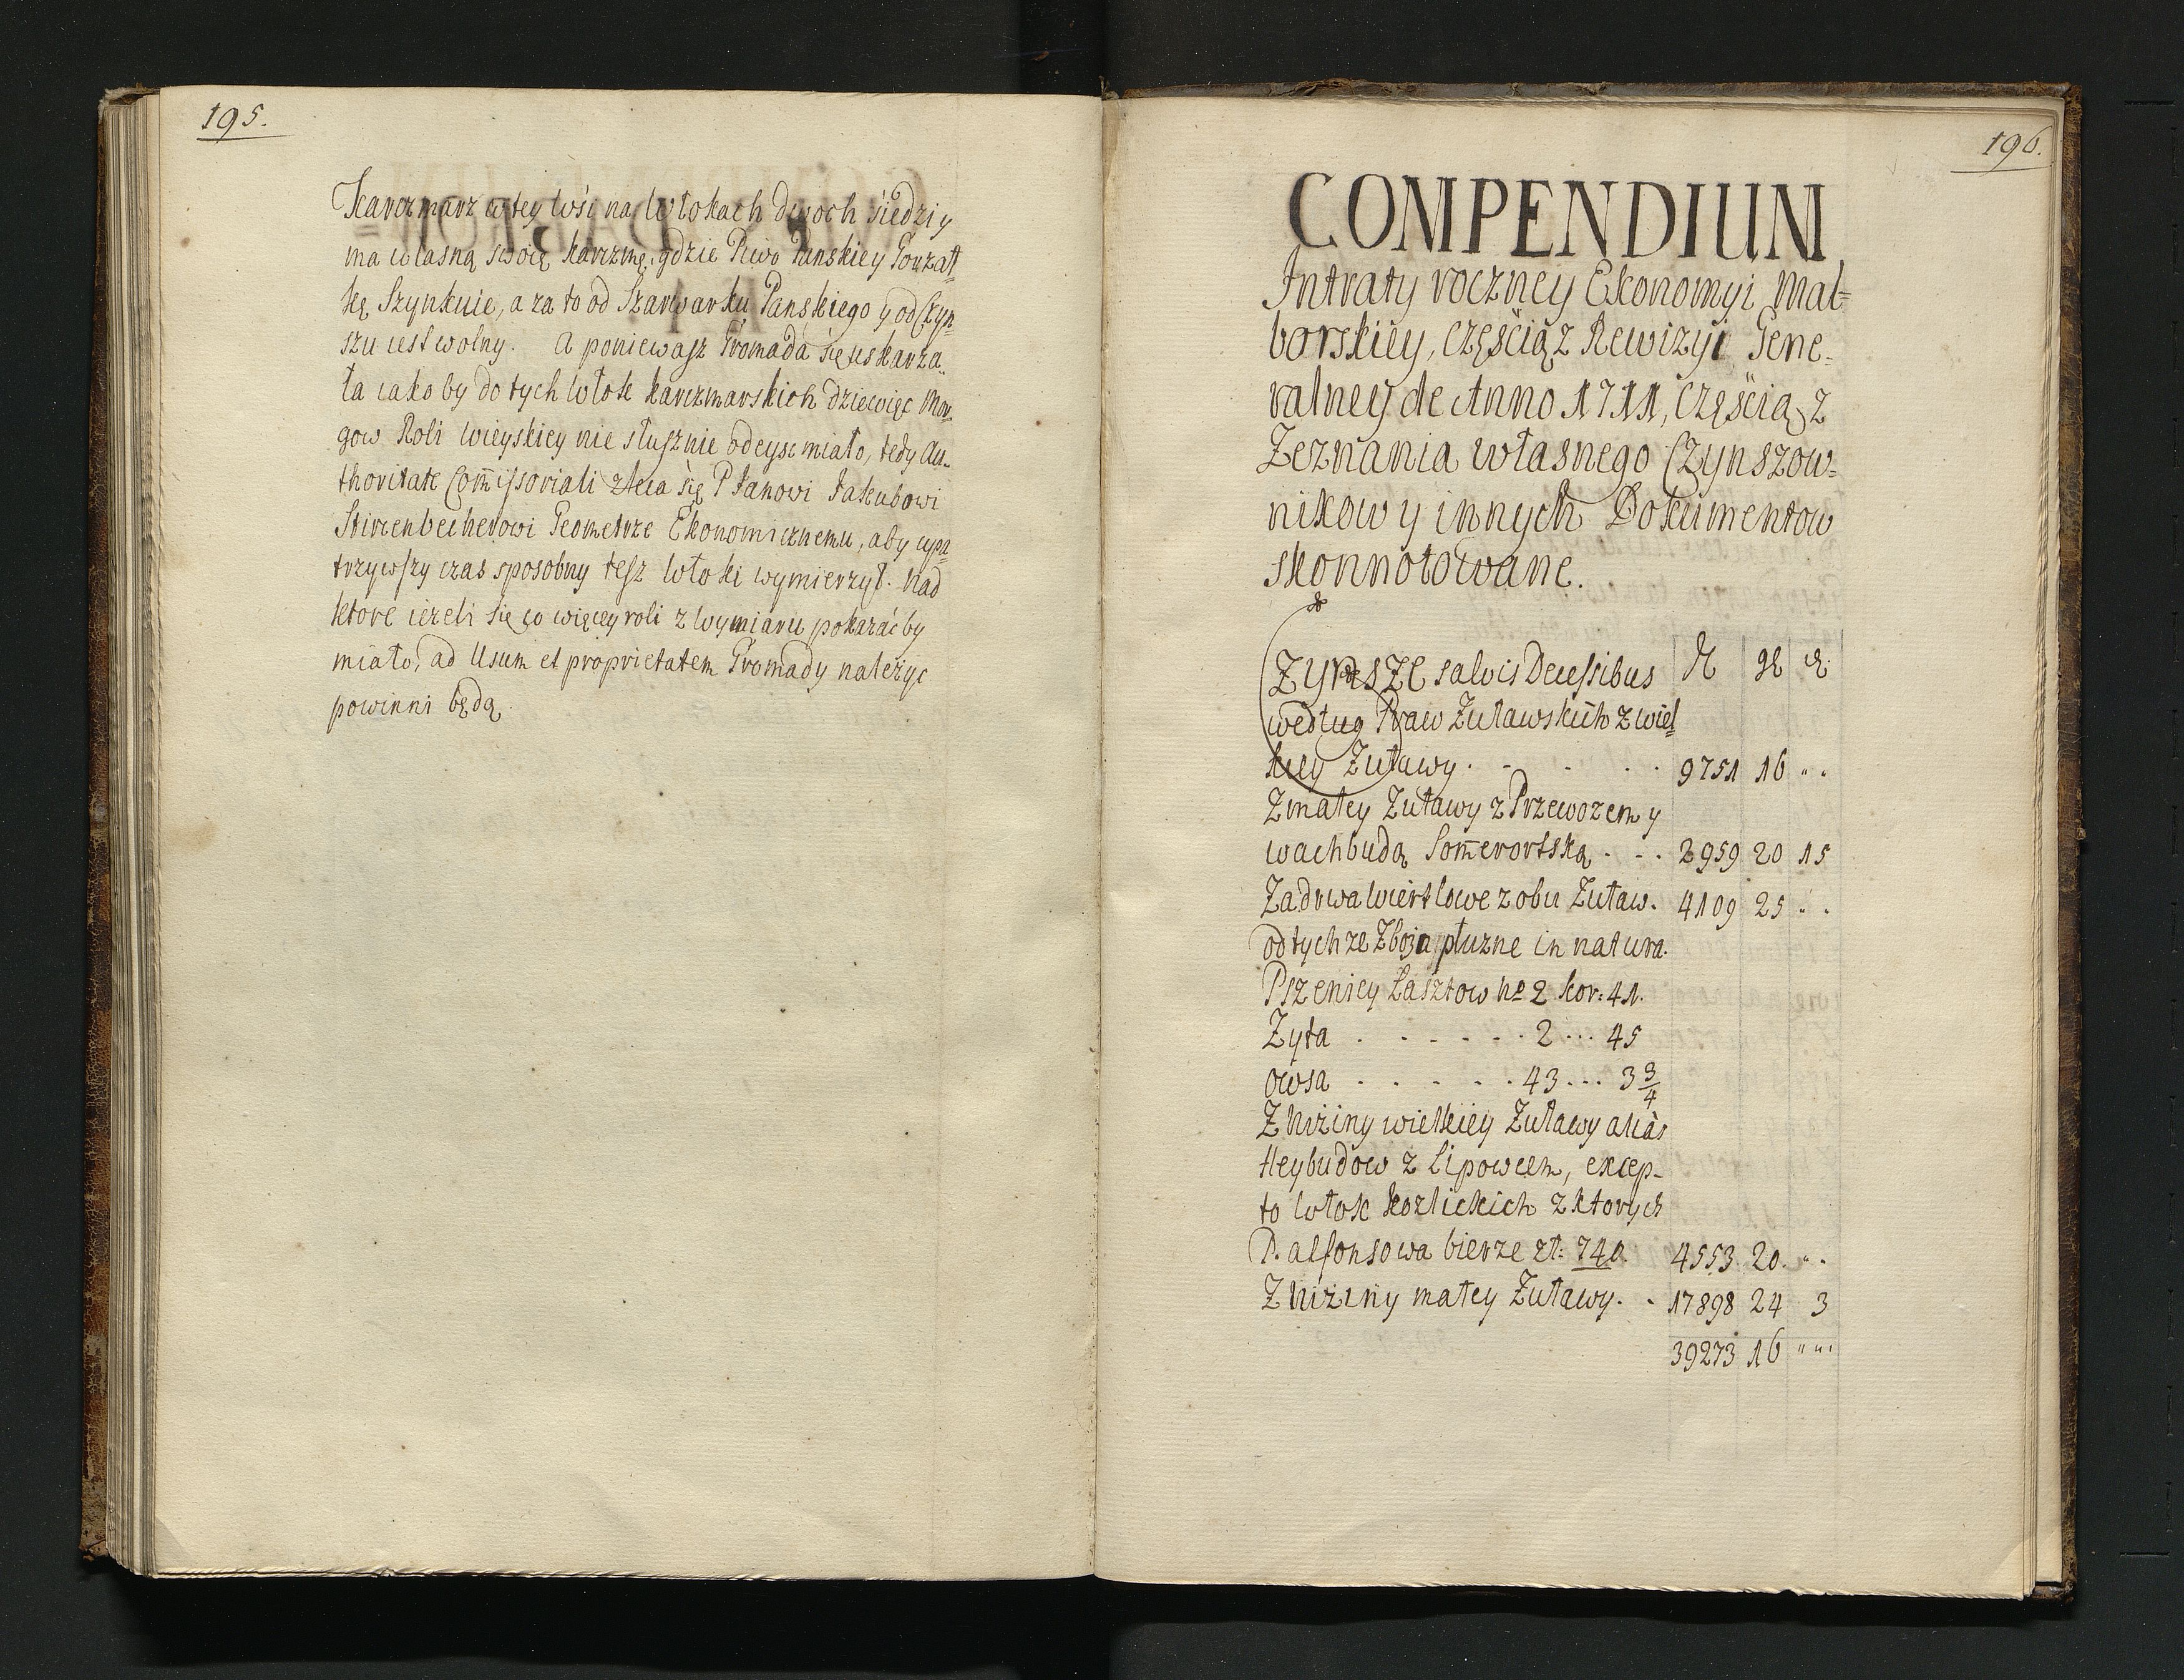 195.
Karczmarz w tey wśi na Włokach dwoch siedzi y
ma własną swoię karczmę, gdzie Piwo Panskiey Gorzałł=
kę Szynkuie, a za to od Szarwarku Panskiego y od Czyn=
szu iest wolny. A poniewasz Gromada się uskarza..
ła iako by do tych Włok karczmarskich dziewięc Mor.
gow Roli Wieyskiey nie słusznie odeysc miało, tedy Au..
thoritate Com̄issoriali zleca się P Janowi Jakubowi
Stircenbecherowi Geometrze Ekonomicznemu, aby upa=
trzywszy czas sposobny tesz Włoki wymierzył. Nad
ktore ieżeli się co więcey roli z wymiaru pokazać by
miało, ad Usum et proprietatem Gromady należyc
powinni będą.
196.
COMPENDIUM
Intraty roczney Ekonomyi Mal=
borskiey, częścią z Rewizyi Gene=
ralney de Anno 1711, częścią z
Zeznania własnego Czynszow=
nikow y innych Dokumentow
skonnotowane.
Czynsze salvis Decessibus
według Praw Żuławskich z wiel=
kiey Żuławy . - - . . 9751 16 " .
Z małey Żuławy z Przewozem y
wachbudą Som̄erortską . - . 2959 20 15
Za drwa wiertlowe z obu Żuław. 4109 25 . .
od tych ze Zboża płużne in natura.
Pszenicy Łasztow No 2 kor: 41.
Żyta . . - - - . . 2 ... 45
Owsa . . - . . . 43 ... 3 3/4
Z Niziny wielkiey Żuławy alias
Heybudow z Lipowcem, excep-
to Włok kozlickich z ktorych
P. alfonsowa bierze zł: 740. 4553. 20. " .
Z Niziny małey Żuławy . . 17898 24 3
39273 16 " " '